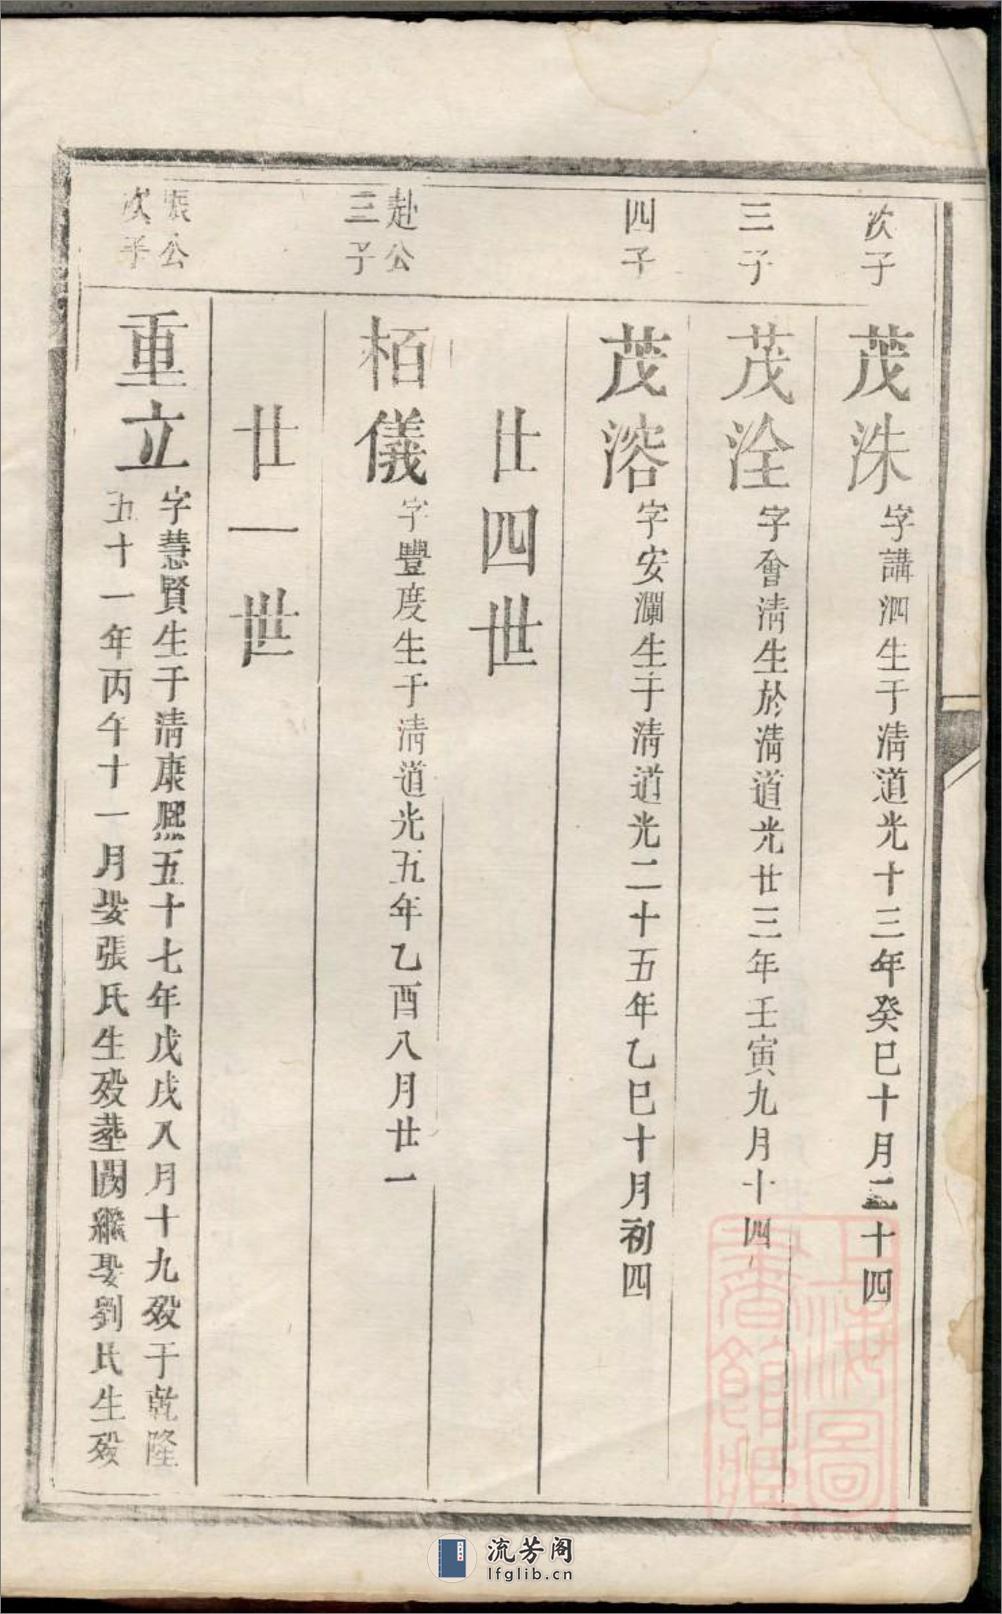 次子
茂洙
字講泗生于清道光十三年癸巳十月二十四
三子
茂淦
字會清生於清道光廿三年壬寅九月十四
四子
茂溶
字安瀾生于清道光二十五年乙巳十月初四
廿四世
赴公
三子
栢儀
字豐度生于清道光五年乙酉八月廿一
廿一世
振公
次子
重立
字慧賢生于清康熙五十七年戊戌八月十九歿于乾隆
五十一年丙午十一月娶張氏生歿塟闕繼娶劉氏生歿
上海圖
書館藏
流芳阁
lfglib.cn